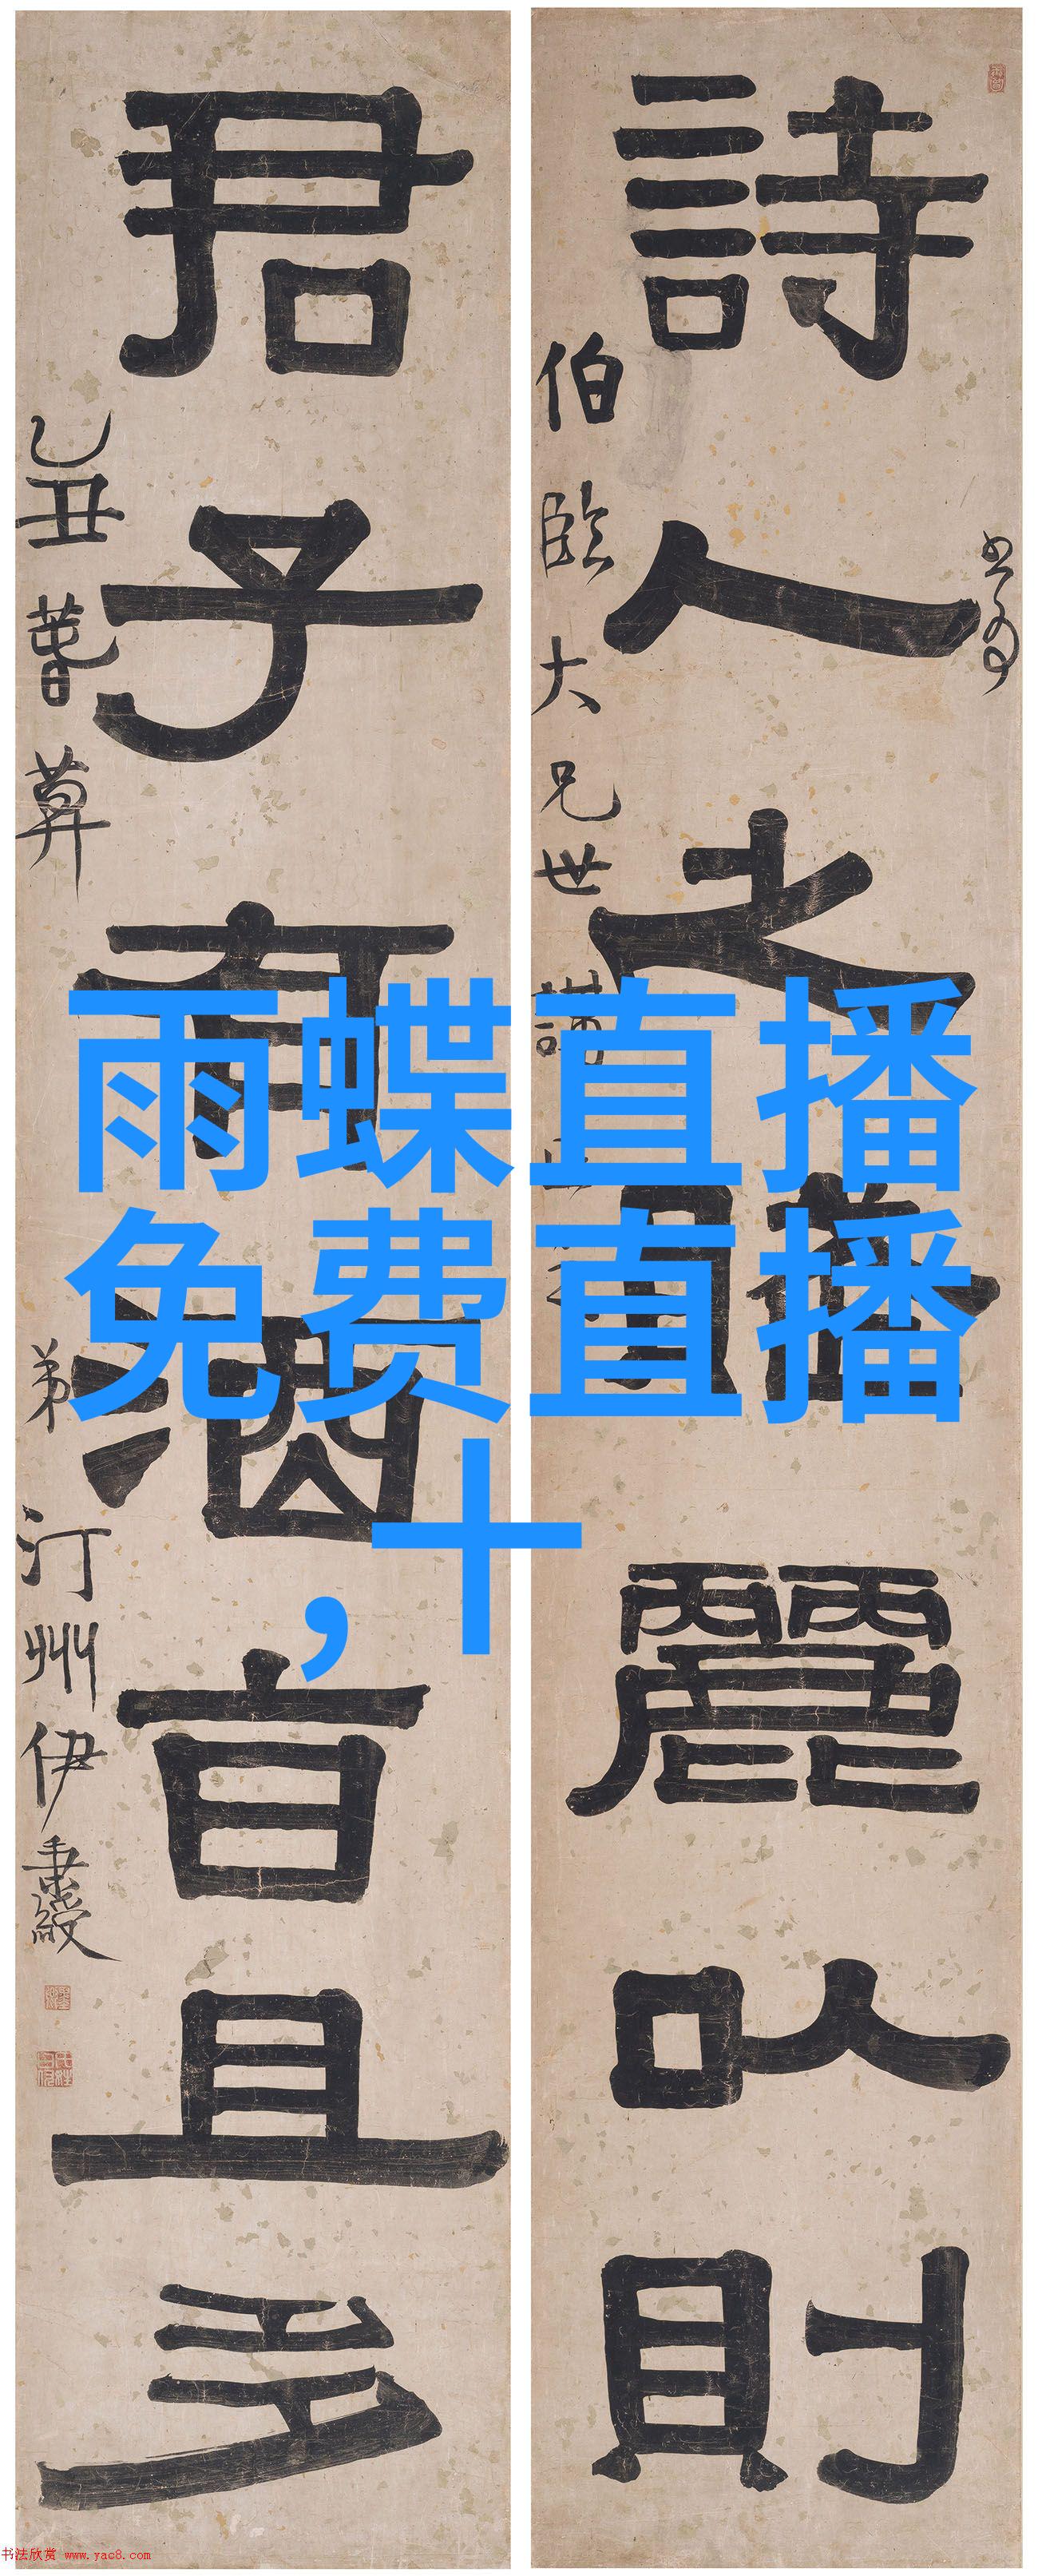 詩人之賦麗以則
君子有酒旨且多
伯臨大兄世講
乙丑暮春算
弟汀州伊秉綬
雨蝶直播
免费直播
，十
书法欣赏 www.yac8.com